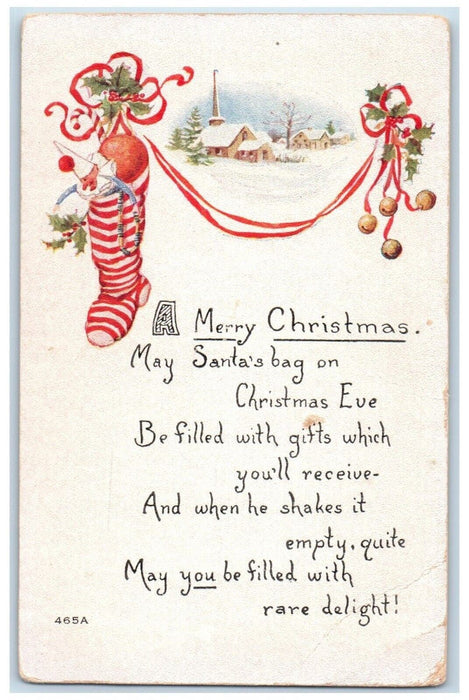 A Merry Christmas.
May Santa's bag on
Christmas Eve
Be filled with gifts which
you'll receive-
And when he shakes it
empty, quite
May you be filled with
rare delight!
465A